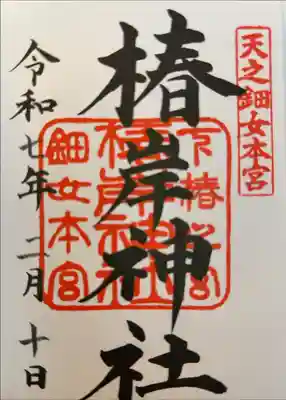 天之鈿女本宮
椿岸神社
椿岸神社
鈿女本宮
令和七年 二月 十日